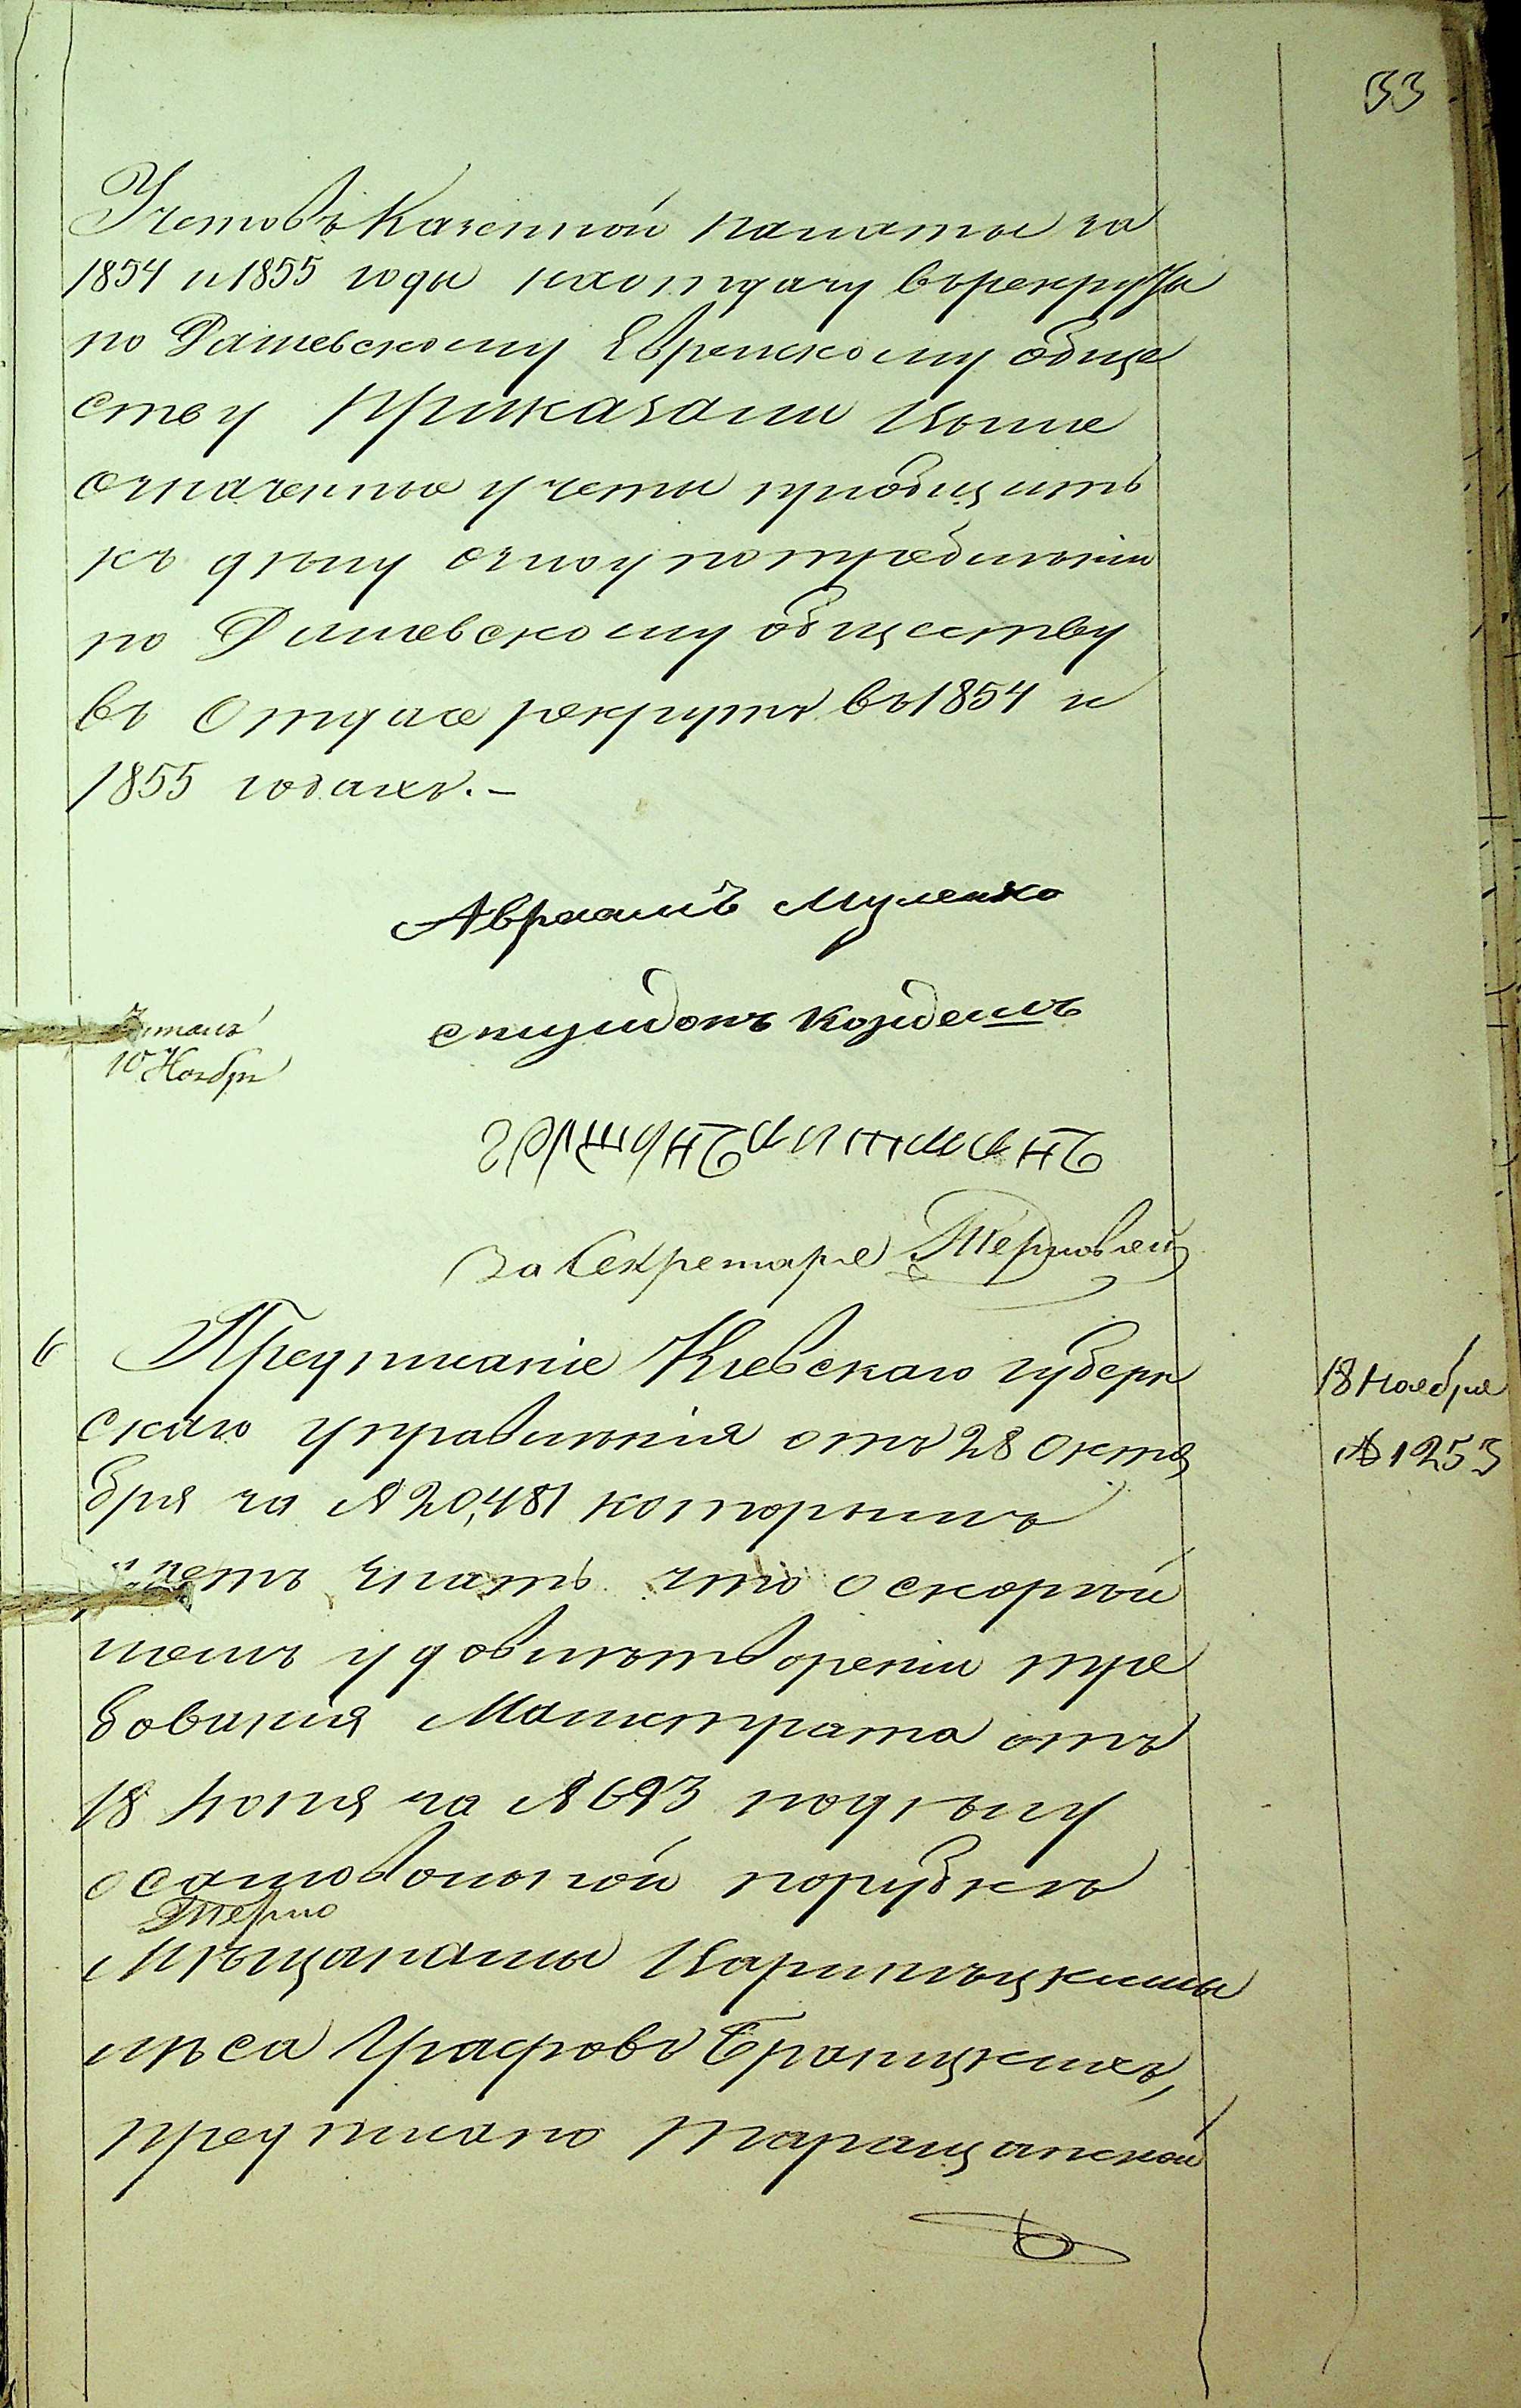 33
Учетовъ Казенной палаты за
1854 и 1855 годы на отдачу въ рекруты
по Рашевскому Еврейскому обще
ству Приказали Выше
означенные учеты приобщить
къ дѣлу о злоупотребленіи
по Рашевскому обществу
въ Отдаче рекрутъ въ 1854 и
1855 годахъ.–
Авраамъ
Читалъ
10 Ноября
За Секретаря Терновый
6 Предписаніе Кіевскаго губерн
скаго управленія отъ 28 Октя
бря за № 20,481 которымъ
даетъ знать что о скорѣй
шемъ удовлетвореніи тре
бованія Магистрата отъ
18 Іюня за № 693 по дѣлу
о самовольной порубкѣ
Мѣщанами
лѣса Графовъ Браницкихъ,
предписано Таращанской
18 Ноября
№ 1253